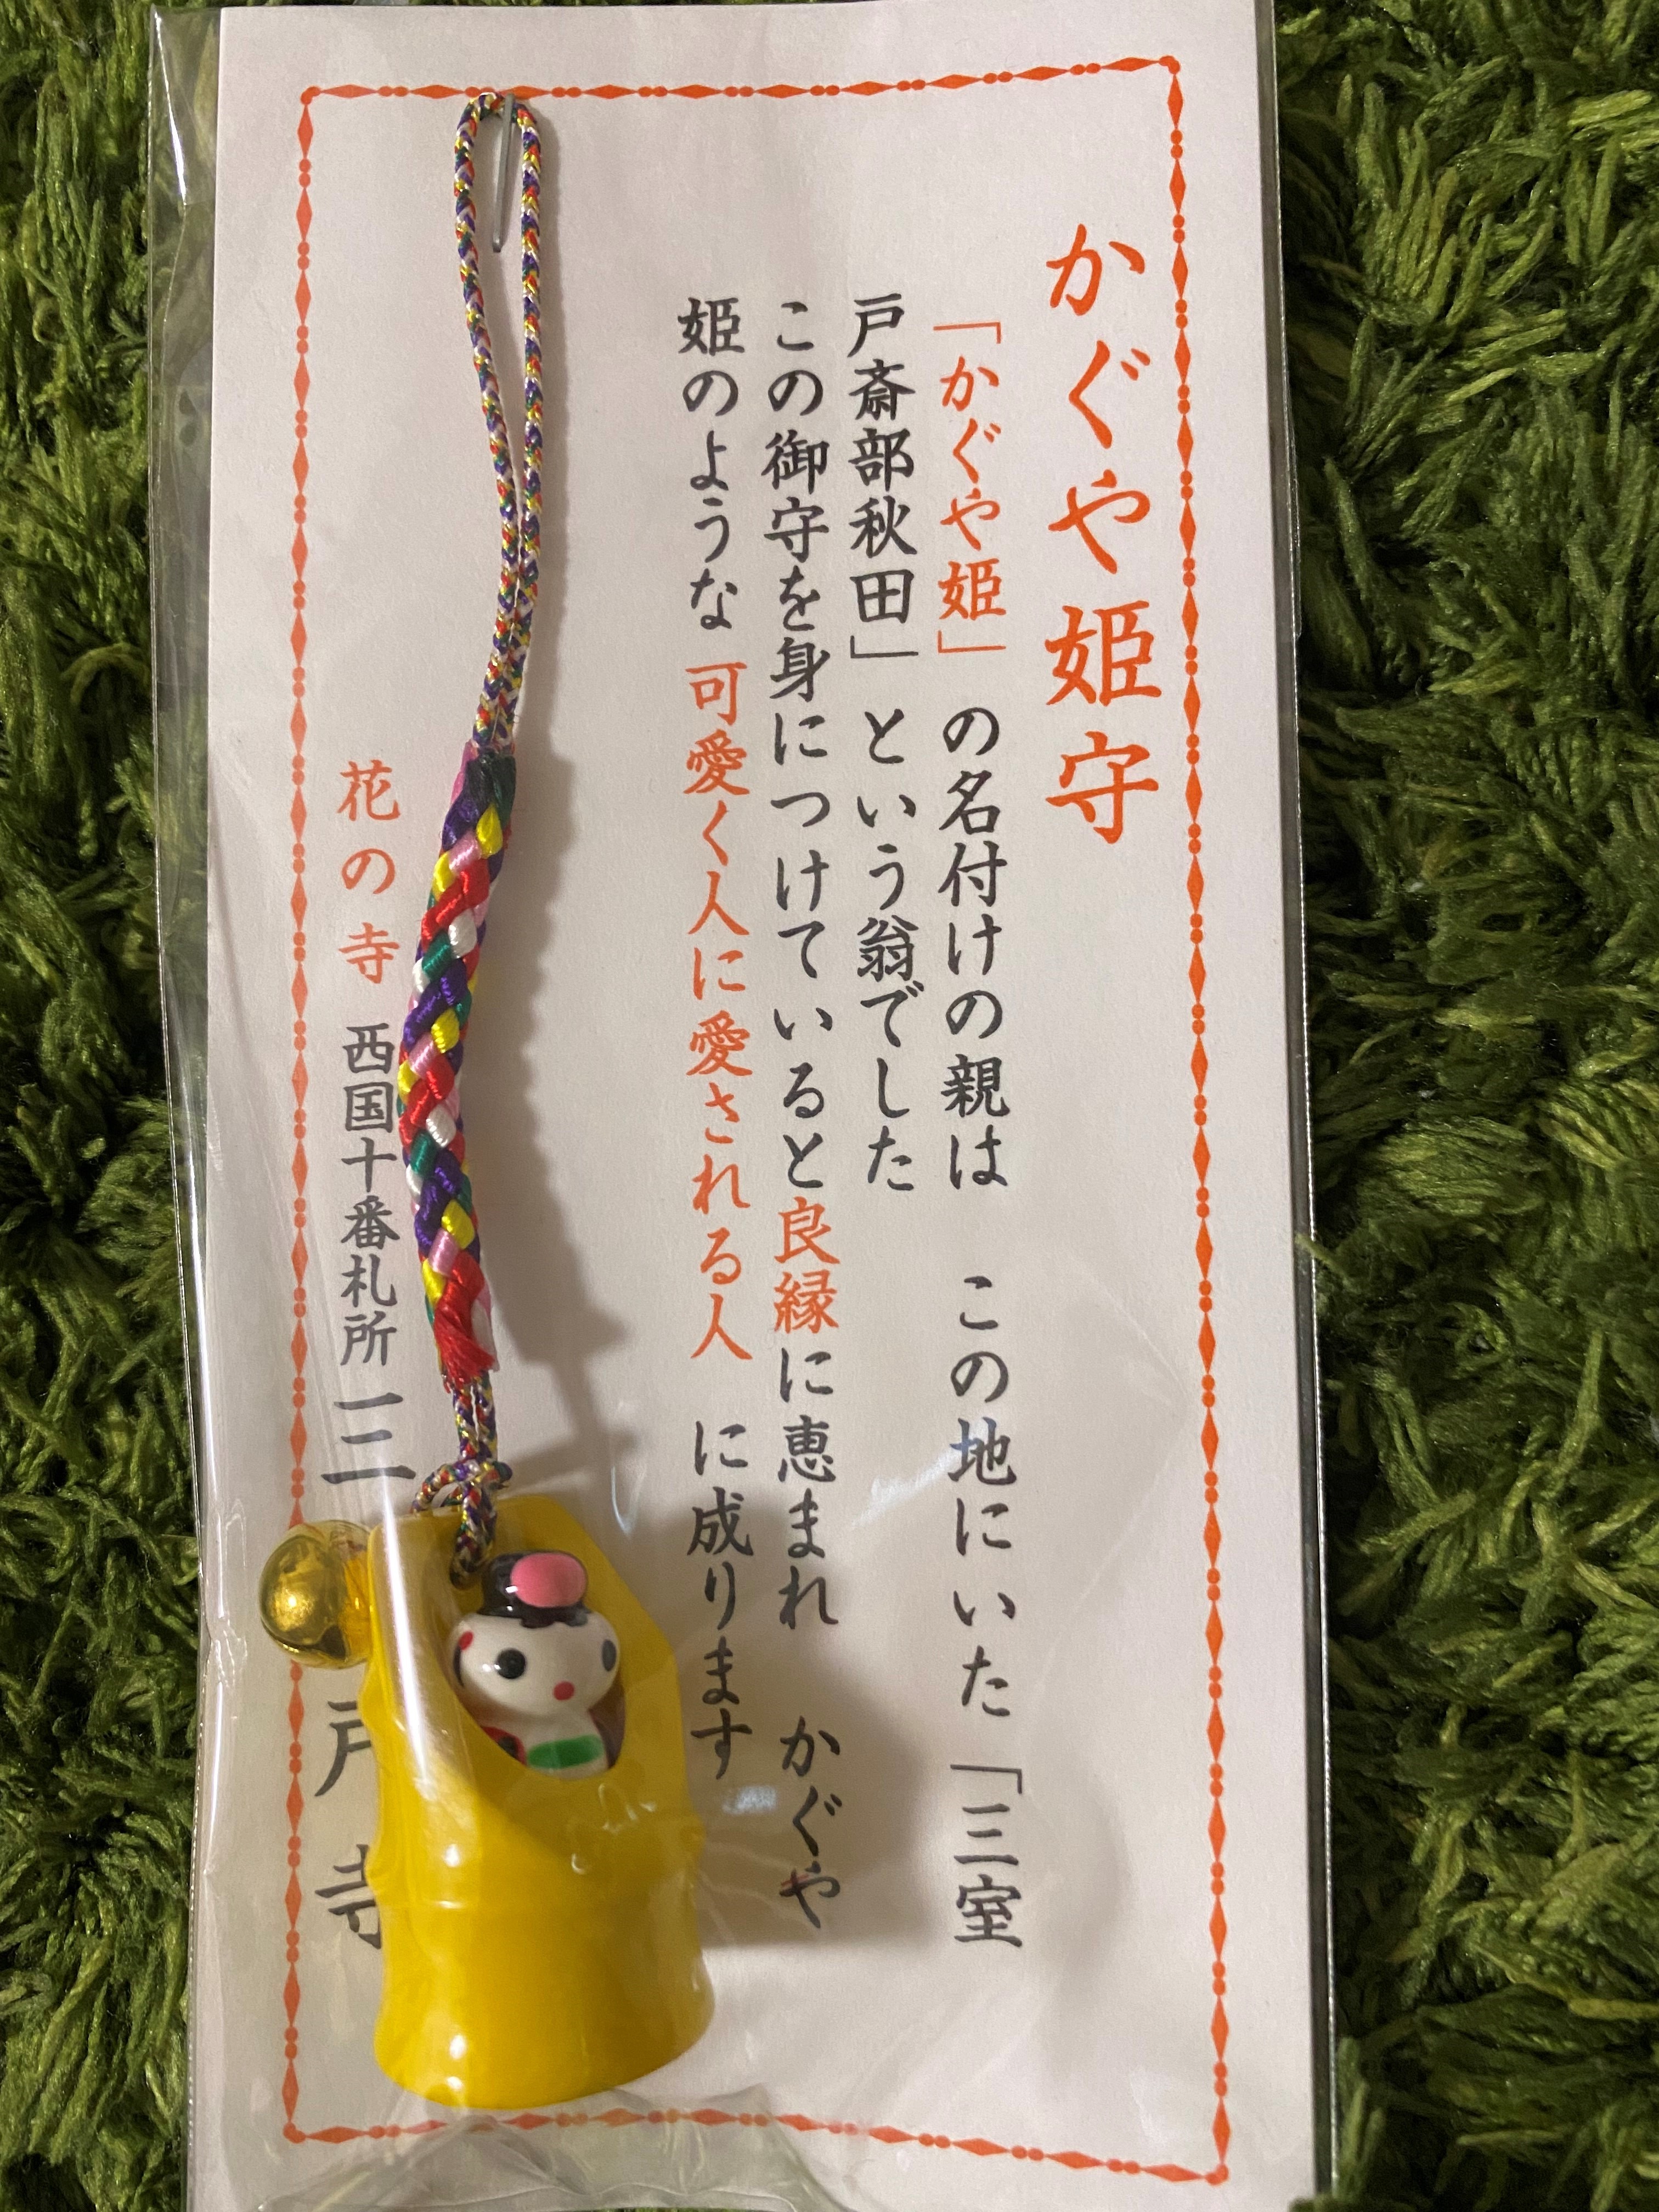 かぐや姫守
「かぐや姫」の名付けの親は この地にいた「三室
戸斎部秋田」という翁でした
この御守を身につけていると良縁に恵まれ かぐや
姫のような可愛く人に愛される人 に成ります
花の寺 西国十番札所 三 戸寺